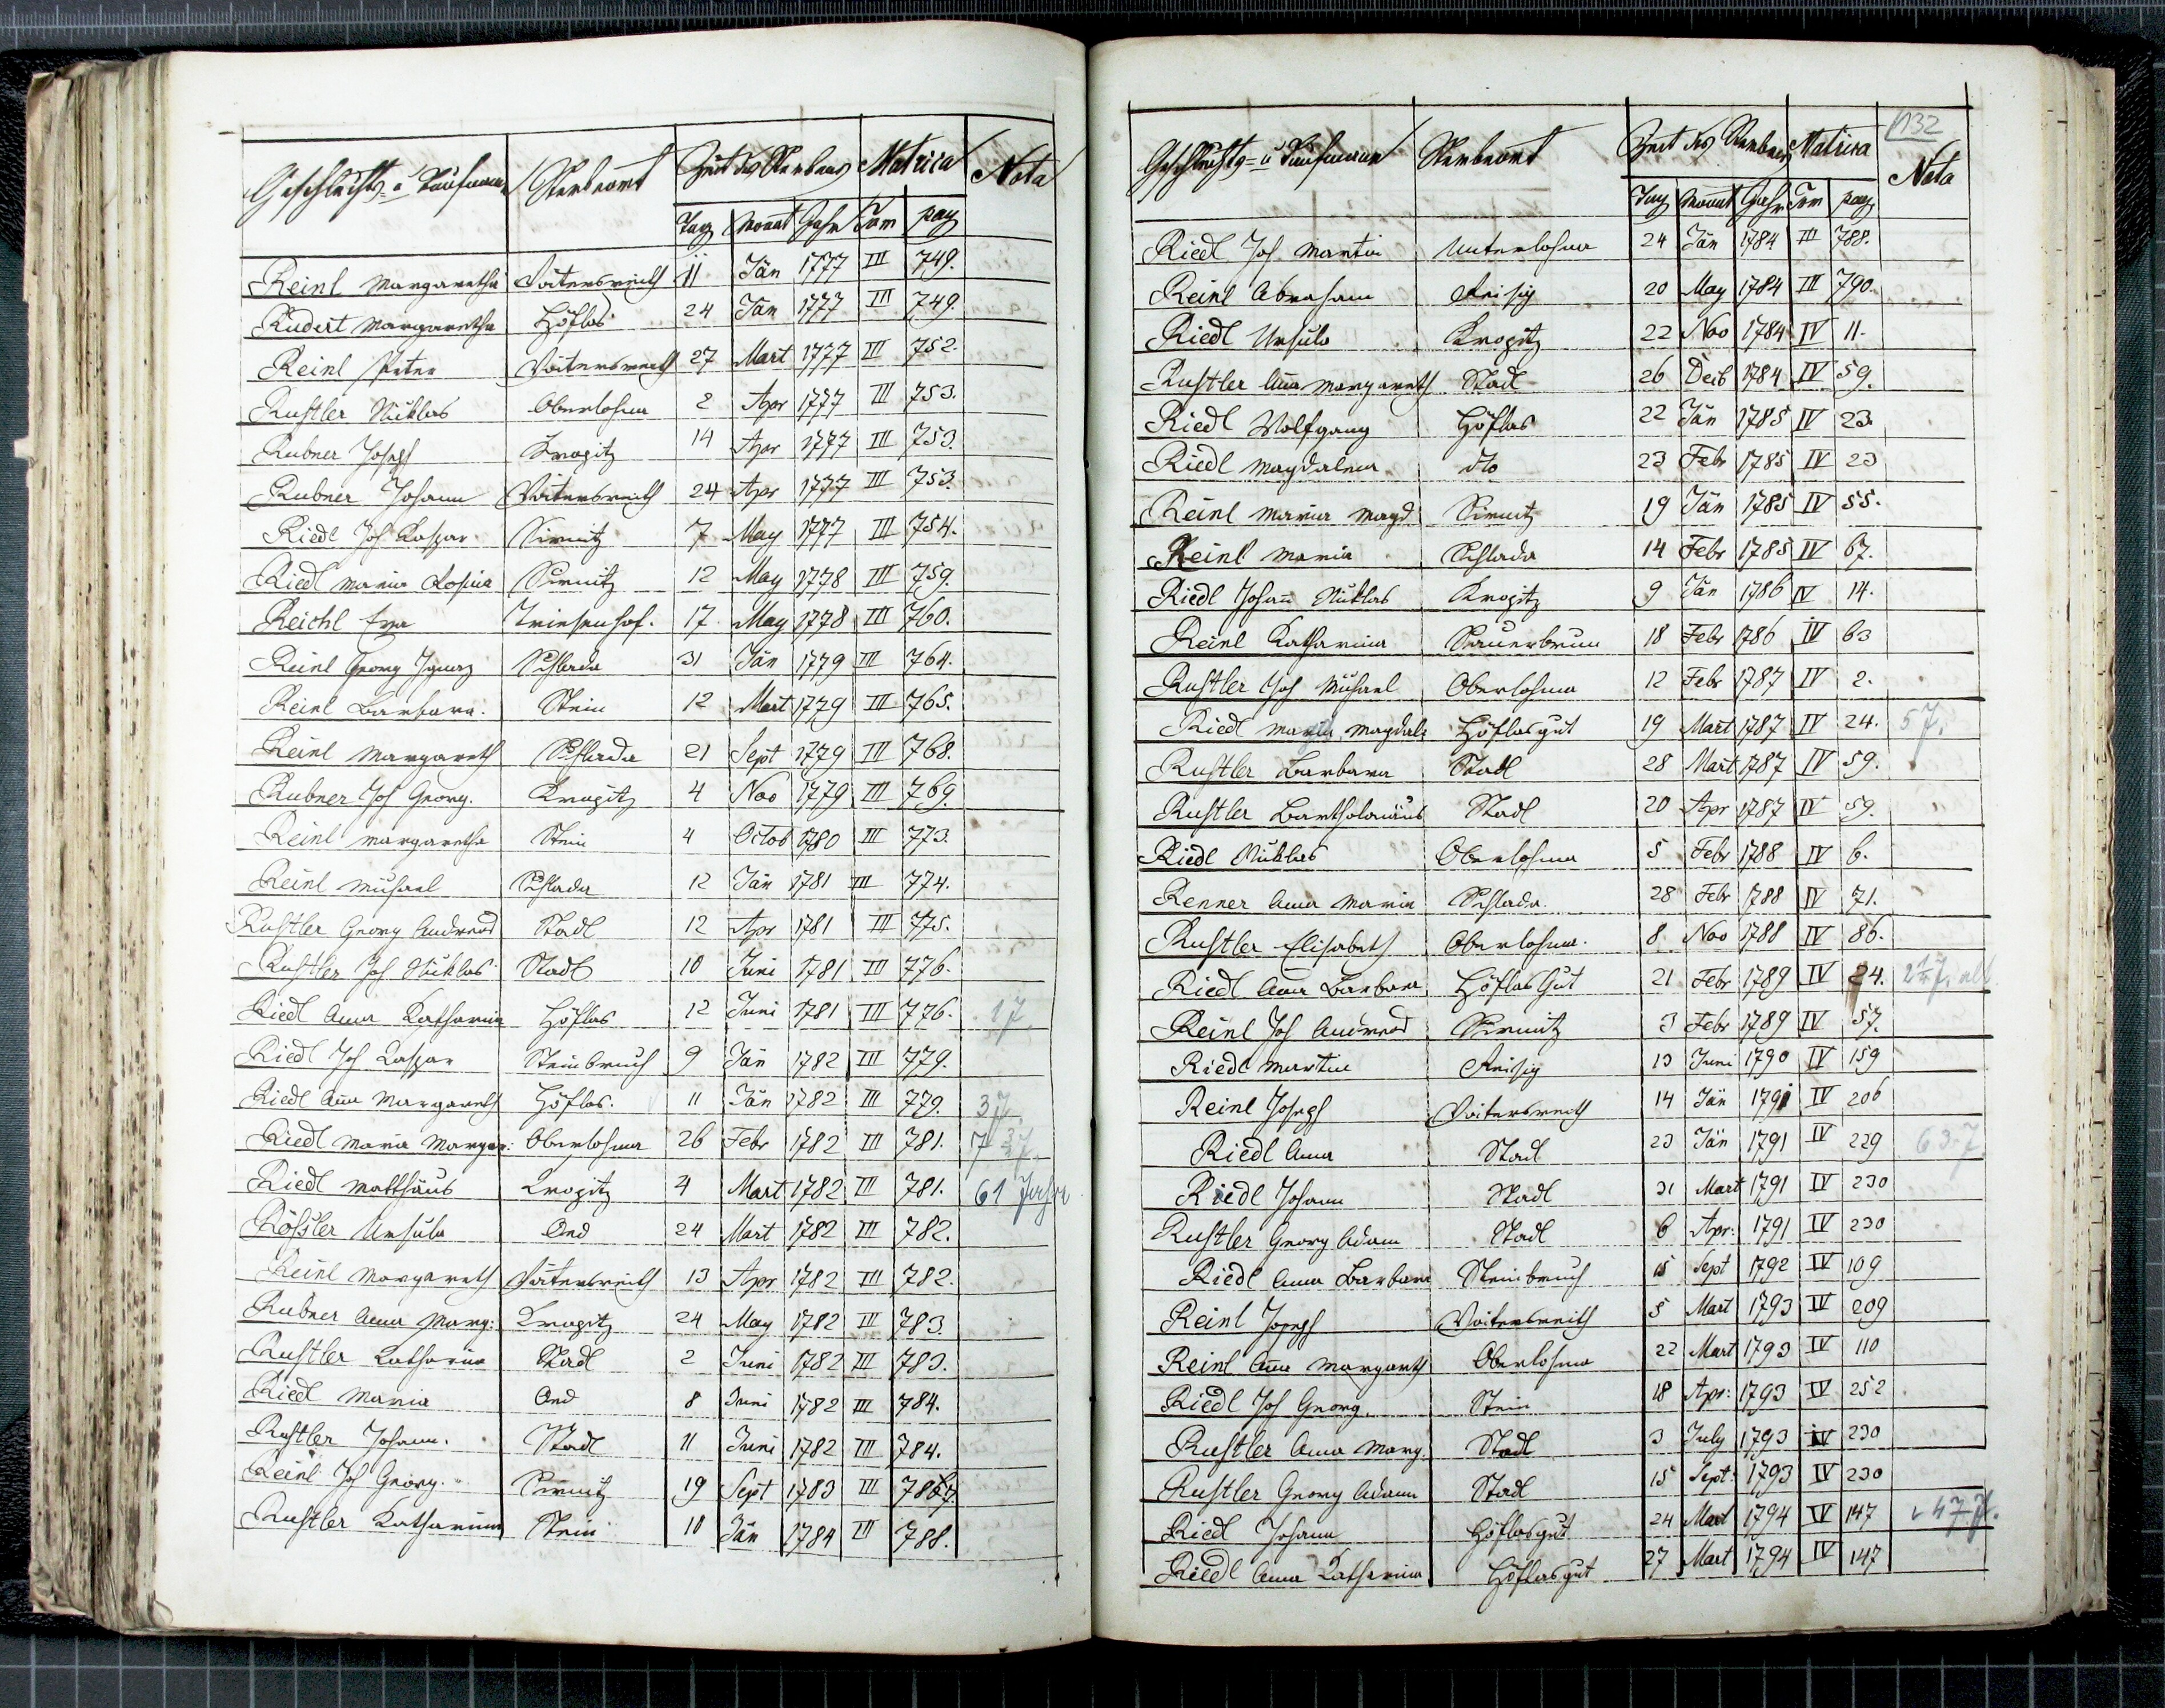 Geschlechts- u Taufname Sterbeort Zeit des Sterbens Matrica Nota
Tag Monat Jahr Tom pag
Reinl Margaretha Voitersreith 11 Jän 1777 III 749.
Rudert Margaretha Höflas 24 Jän 1777 III 749.
Reinl Peter Voitersreith 27 Mart 1777 III 752.
Rustler Niklas Oberlohma 2 Apr 1777 III 753.
Rubner Joseph Kropitz 14 Apr 1777 III 753.
Rubner Johann Voitersreith 24 Apr 1777 III 753.
Riedl Joh Kaspar Sirmitz 7 May 1777 III 754.
Riedl Maria Rosina Sirmitz 12 May 1778 III 759.
Reichl Eva Triesenhof. 17 May 1778 III 760.
Reinl Georg Ignaz Schlada 31 Jän 1779 III 764.
Reinl Barbara. Stein 12 Mart 1779 III 765.
Reinl Margareth Schlada 21 Sept 1779 III 768.
Rubner Joh Georg. Kropitz 4 Nov 1779 III 769.
Reinl Margaretha Stein 4 Octob 1780 III 773.
Reinl Michael Schlada 12 Jän 1781 III 774.
Rustler Georg Andreas Stadl 12 Apr 1781 III 775.
Rustler Joh Niklas Stadl 10 Juni 1781 III 776.
Riedl Anna Katharina Höflas 12 Juni 1781 III 776. 1 J
Riedl Joh Kaspar Steinbruch 9 Jän 1782 III 779.
Riedl Aña Margareth Höflas. 11 Jän 1782 III 779. 3 J
Riedl Maria Margar: Oberlohma 26 Febr 1782 III 781.
Riedl Matthäus Kropitz 4 Mart 1782 III 781. 61 Jahr
Rößler Ursula And 24 Mart 1782 III 782.
Reinl Margareth Voitersreith 13 Apr 1782 III 782.
Rubner Anna Marg: Kropitz 24 May 1782 III 783.
Rustler Katharina Stadl 2 Juni 1782 III 783.
Riedl Maria And 8 Juni 1782 III 784.
Rustler Johann. Stadl 11 Juni 1782 III 784.
Reinl Joh Georg. Sirmitz 19 Sept 1783 III 787.
Rustler Katharina Stein 10 Jän 1784 III 788.
132
Geschlechts- u Taufname Sterbeort Zeit des Sterbens Matrica Nota
Tag Monat Jahr Tom pag
Riedl Joh Martin Unterlohma 24 Jän 1784 III 788.
Reinl Abraham Reisig 20 May 1784 III 790.
Riedl Ursula Kropitz 22 Nov 1784 IV 11.
Rustler Aña Margareth Stadl 26 Decb 1784 IV 59.
Riedl Wolfgang Höflas 22 Jän 1785 IV 23.
Riedl Magdalena dto 23 Febr 1785 IV 23
Reinl Maria Magd Sirmitz 19 Jän 1785 IV 55.
Reinl Maria Schlada 14 Febr 1785 IV 67.
Riedl Johañ Niklas Kropitz 9 Jän 1786 IV 14.
Reinl Katharina Sauerbrunn 18 Febr 1786 IV 63
Rustler Joh Michael Oberlohma 12 Febr 1787 IV 2.
Riedl Maria Magdal: Höflasgut 19 Mart 1787 IV 24. 5 J.
Rustler Barbara Stadl 28 Mart 1787 IV 59.
Rustler Bartholomäus Stadl 20 Apr 1787 IV 59.
Riedl Niklas Oberlohma 5 Febr 1788 IV 6.
Renner Anna Maria Schlada 28 Febr 1788 IV 71.
Rustler Elisabeth Oberlohma. 8 Nov 1788 IV 86.
Riedl Aña Barbara Höflas Gut 21 Febr 1789 IV 24. alt
Reinl Joh Andreas Sirmitz 3 Febr 1789 IV 57.
Riedl Martin Reisig 13 Juni 1790 IV 159
Reinl Joseph Voitersreith 14 Jän 1791 IV 206
Riedl Anna Stadl 23 Jän 1791 IV 229 63 J
Riedl Johann Stadl 31 Mart 1791 IV 230
Rustler Georg Adam Stadl 6 Apr: 1791 IV 230
Riedl Anna Barbara Steinbruch 15 Sept 1792 IV 109
Reinl Joseph Voitersreith 5 Mart 1793 IV 209
Reinl Aña Margareth Oberlohma 22 Mart 1793 IV 110
Riedl Joh Georg Stein 18 Apr: 1793 IV 252
Rustler Anna Marg. Stadl 3 July 1793 IV 230
Rustler Georg Adam Stadl 15 Sept: 1793 IV 230
Riedl Johann Höflasgut 24 Mart 1794 IV 147 47 J.
Riedl Anna Katharina Höflasgut 27 Mart 1794 IV 147